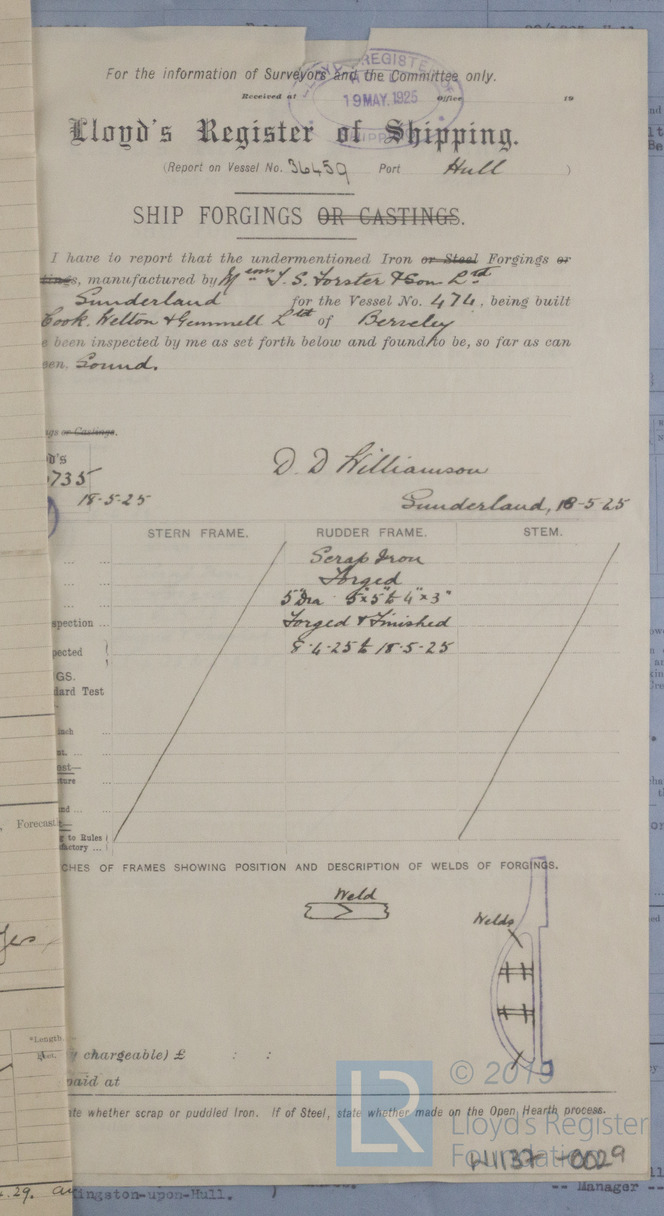 For the information of Surveyors and the Committee only.
LLOYD'S REGISTER OF
Received at
19 MAY.1925
Office
19
SHIPPING
Lloyd's Register of Shipping.
(Report on Vessel No. 36459 Port Hull )
SHIP FORGINGS OR CASTINGS.
I have to report that the undermentioned Iron or Steel Forgings or
tings, manufactured by Messrs T. S. Forster & Son Ltd
Sunderland for the Vessel No. 474, being built
Cook, Welton & Gemmell Ltd of Beverley
e been inspected by me as set forth below and found to be, so far as can
een, Sound.
ngs or Castings.
d's
735
18-5-25
D. D Williamson
Sunderland, 18-5-25
STERN FRAME. RUDDER FRAME. STEM.
Scrap Iron
Forged
5" Dia 5"x5" to 4"x3"
spection ... Forged & Finished
pected 8-4-25 to 18-5-25
GS.
dard Test
inch
nt. ...
est—
ture
nd ...
t—
g to Rules
factory ...
CHES OF FRAMES SHOWING POSITION AND DESCRIPTION OF WELDS OF FORGINGS.
Weld
Welds
y chargeable) £ : :
paid at
ate whether scrap or puddled Iron. If of Steel, state whether made on the Open Hearth process.
© 2019
LR
Lloyd's Register
Foundation
W1137-0029
Forecast
*Length.
ingston-upon-Hull. )
-- Manager --